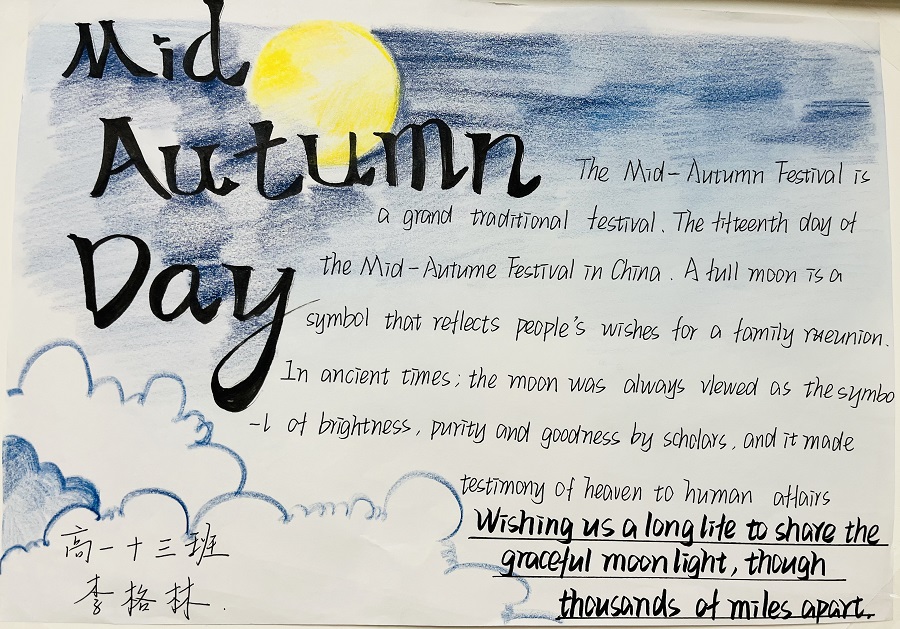 Mid
Autumn
Day
The Mid-Autumn Festival is
a grand traditional festival. The fifteenth day of
the Mid-Autume Festival in China. A full moon is a
symbol that reflects people's wishes for a family rueunion.
In ancient times; the moon was always vlewed as the symbo
-l of brightness, purity and goodness by scholars, and it made
testimony of heaven to human affairs
Wishing us a long life to share the
graceful moonlight, though
thousands of miles apart.
高一十三班
李格林.